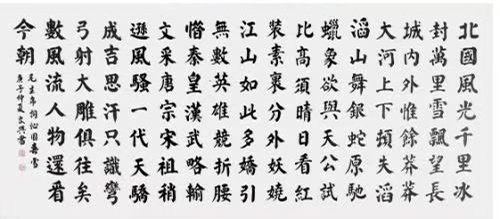 北國風光千里冰
封萬里雪飄望長
城內外惟餘莽莽
大河上下頓失滔
滔山舞銀蛇原馳
蠟象欲與天公試
比高須晴日看紅
裝素裹分外妖嬈
江山如此多嬌引
無數英雄競折腰
惜秦皇漢武略輸
文采唐宗宋祖稍
遜風騷一代天驕
成吉思汗只識彎
弓射大雕俱往矣
數風流人物還看
今朝
毛主席詞沁園春雪
庚子仲夏文興書